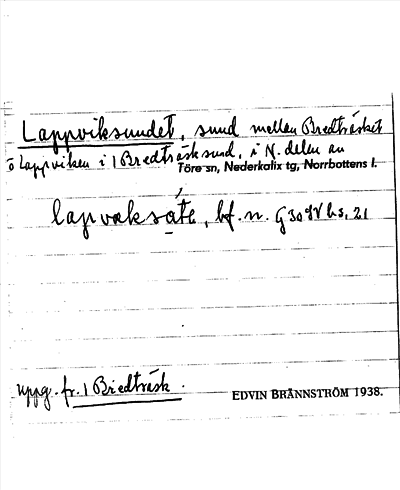 Lappviksundet, sund mellan Bredträsket
o Lappviken i 1 Bredträsk sund, i N. delen av
Töre sn, Nederkalix tg, Norrbottens l.
bf. n. G 30
uppg. fr. 1 Bredträsk.
EDVIN BRÄNNSTRÖM 1938.